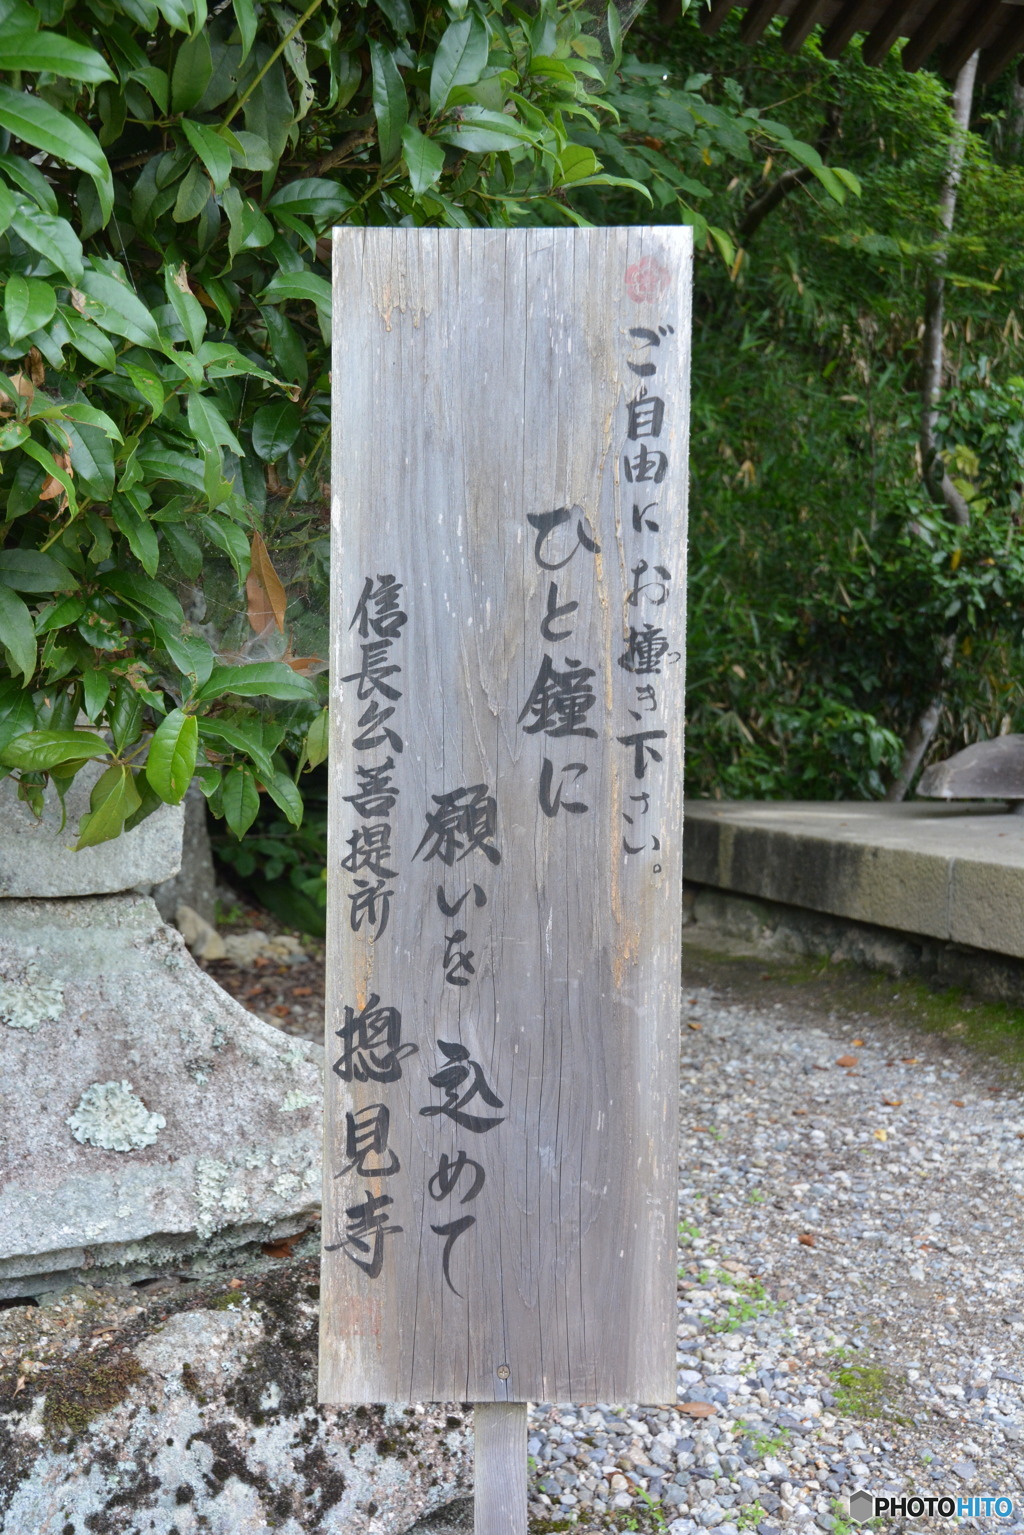 ご自由にお撞き下さい。
つ
ひと鐘に
願いを込めて
信長公菩提所 摠見寺
PHOTOHITO